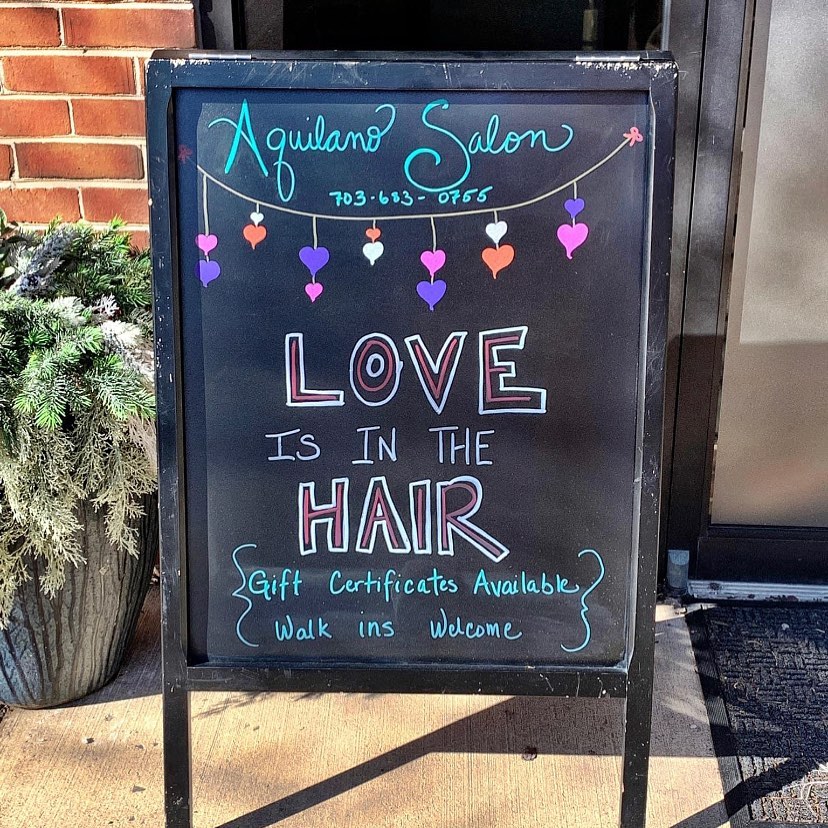 Aquilano Salon
703-683-0755
LOVE
IS IN THE
HAIR
Gift Certificates Available
Walk ins Welcome